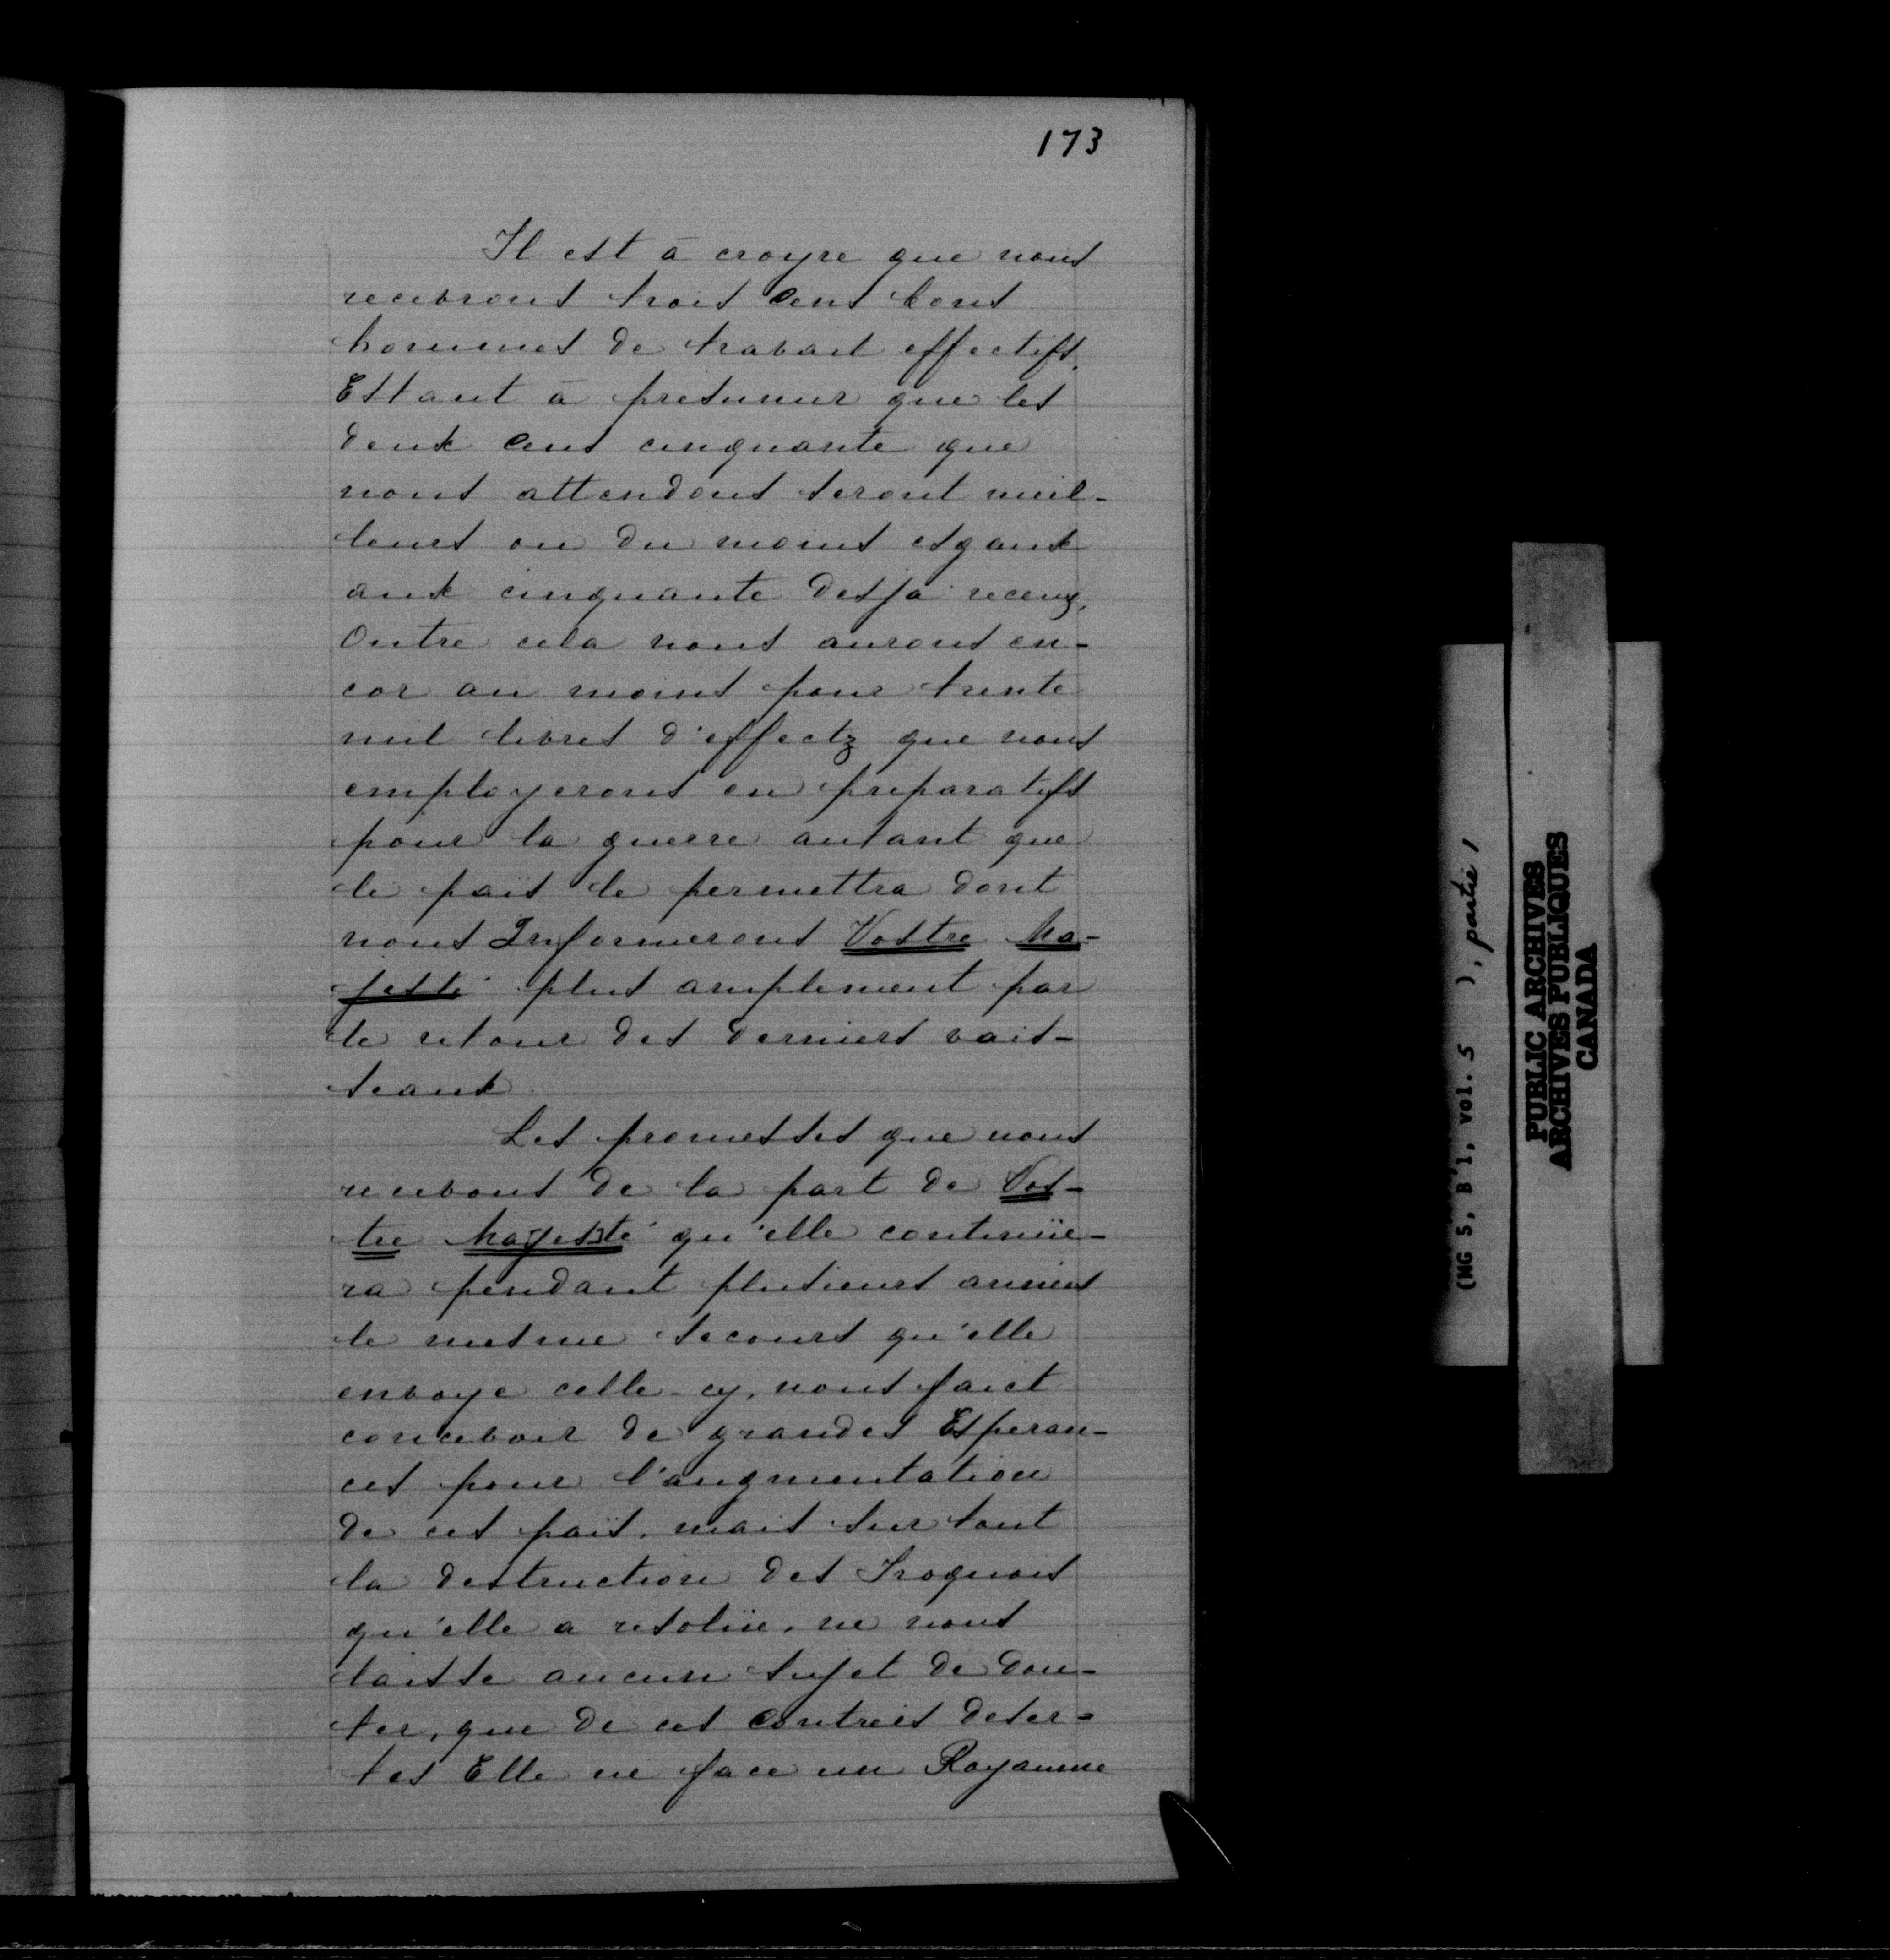 173
Il est à croyre que nous
recevrons trois Cens bons
hommes de travail effectifs,
Estant à presumer que les
deux Cens cinquante que
nous attendons seront meil-
leurs ou du moins esgaux
aux cinquante desja receuz,
Outre cela nous aurons en-
cor au moins pour trente
mil livres d'effectz que nous
employerons en preparatifs
pour la guerre autant que
le païs le permettra dont
nous Informerons Vostre Ma-
jesté plus amplement par
le retour des derniers vais-
seaux.
Les promesses que nous
recevons de la part de Vos-
tre Majesté qu'elle continüe-
ra pendant plusieurs années
le mesme secours qu'elle
envoye celle-cy, nous faict
concevoir de grandes Esperan-
ces pour l'augmentation
de ces païs, mais sur tout
la destruction des Iroquois
qu'elle a resolüe, ne nous
laisse aucun sujet de dou-
ter, que de ces Contrées deser-
tes Elle ne face un Royaume
(MG 5, B 1, vol. 5 ), partie 1
PUBLIC ARCHIVES
ARCHIVES PUBLIQUES
CANADA